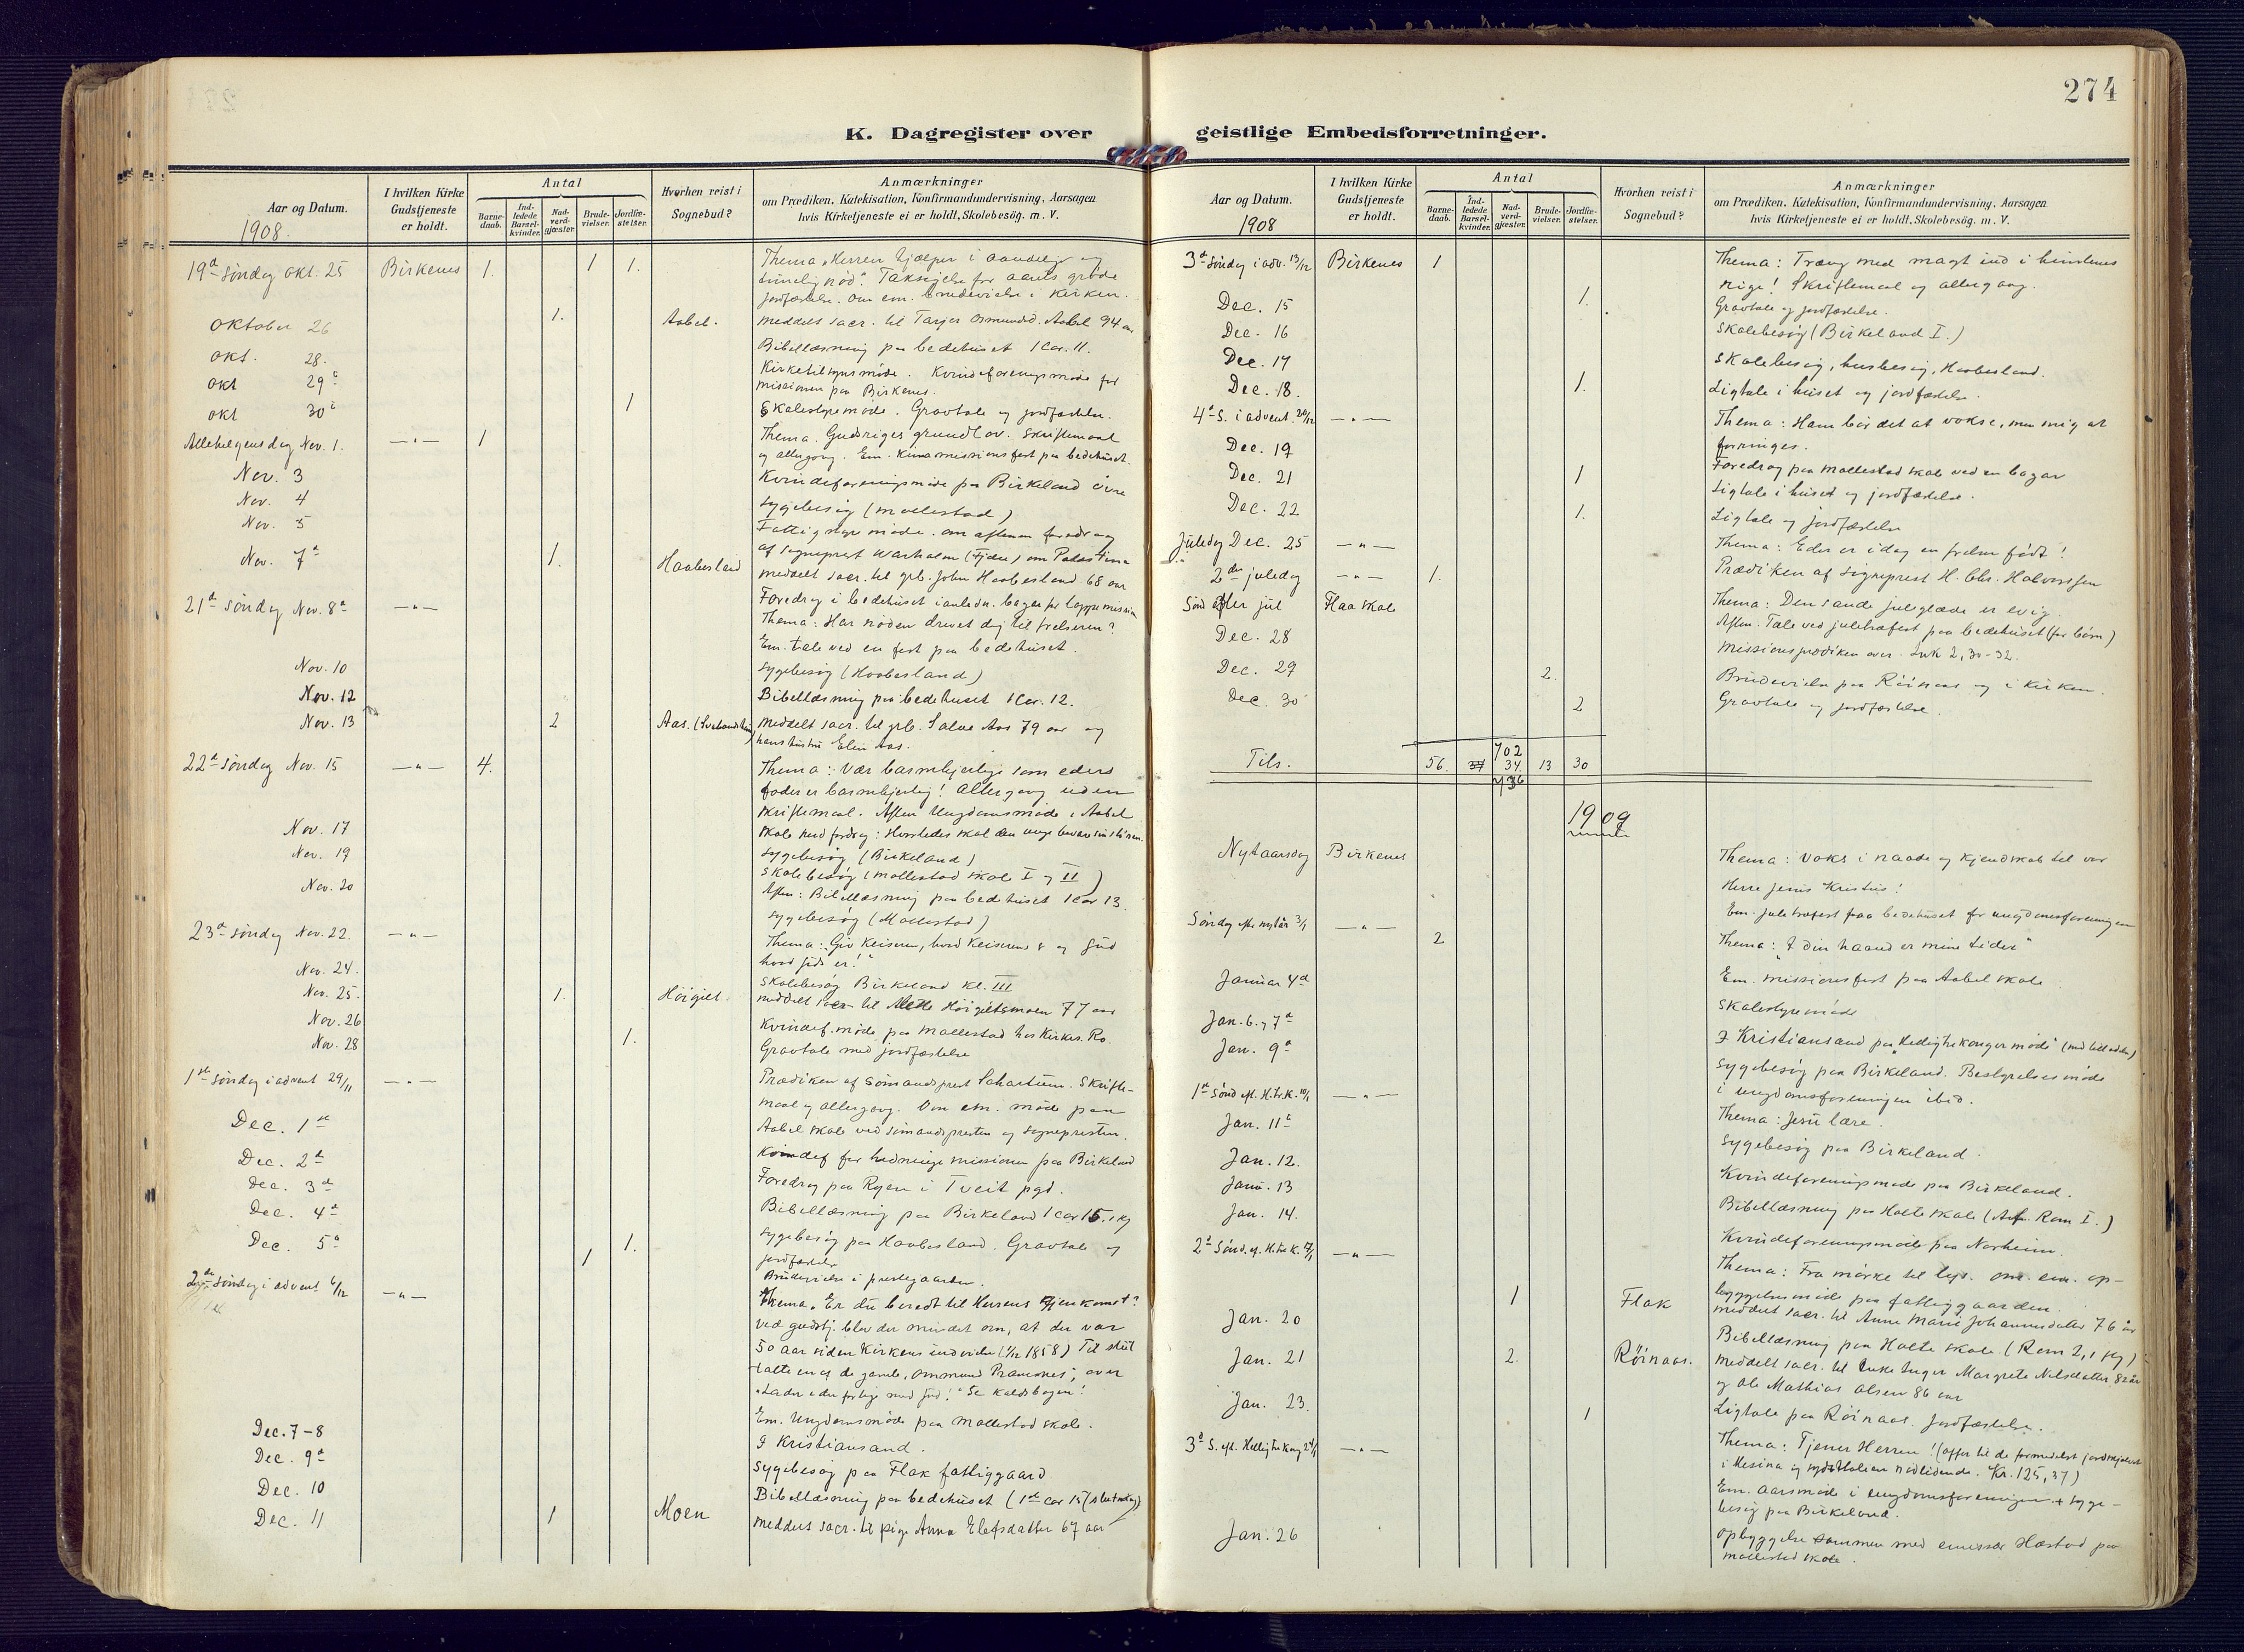 274
K. Dagregister over geistlige Embedsforretninger.
Aar og Datum.
1908.
I hvilken Kirke Gudstjeneste er holdt.
Antal
Barnedaab.
Indledede Barselkvinder.
Nadverdgjæster.
Brudevielser.
Jordfæstelser.
Hvorhen reist i Sognebud?
Anmærkninger
om Prædiken, Katekisation, Konfirmandundervisning, Aarsagen
hvis Kirketjeneste ei er holdt, Skolebesøg. m. V.
19d søndag okt. 25 Birkenes 1. 1 1. Thema „Herren hjælper i aandelig og
timelig nød". Taksigelse for aarets grøde
jordfæstelse. Om em. brudevielse i kirken.
oktober 26 1. Aabel. meddelt sacr. til Tarjer Osmundsd. Aabel 94 aar
okt. 28. Bibellæsning paa bedehuset 1 Cor. 11.
okt 29d Kirketilsynsmøde. Kvindeforeningsmøde for
missionen paa Birkenes.
okt 30d 1 Skolestyremøde. Gravtale og jordfæstelse.
Allehelgensdag Nov. 1. —"— 1 Thema. Gudsriges grundlov. Skriftemaal
og altergang. Em. Kinamissionsfest paa bedehuset.
Nov. 3 Kvindeforeningsmøde paa Birkeland øvre
Nov. 4 Sygebesøg (Mollestad)
Nov. 5 Fattigstyremøde. om aftenen foredrag
af sogneprest Warholm (Fjære) om Palæstina
Nov. 7d 1. Haabesland meddelt sacr. til grb. John Haabesland 68 aar
Foredrag i bedehuset i anledn. bazar for lappemission
21d søndag Nov. 8d —"— Thema: Har nøden drevet dig til frelseren?
Em. tale ved en fest paa bedehuset.
Nov. 10 Sygebesøg (Haabesland)
Nov. 12 Bibellæsning paa bedehuset 1 Cor. 12.
Nov. 13 2 Aas. meddelt sacr. til grb. Salve Aas 79 aar og
hans hustru Elen Aas.
22d søndag Nov. 15 —"— 4. Thema: Vær barmhjertige som eders
fader er barmhjertig! Altergang uden
skriftemaal. Aften Ungdomsmøde i Aabel
skole med foredrag: Hvorledes skal den unge bevare sin
Nov. 17 Sygebesøg (Birkeland)
Nov. 19 Skolebesøg (Mollestad skole I og II)
Aften: Bibellæsning paa bedehuset 1 Cor 13.
Nov. 20 Sygebesøg (Mollestad)
23d søndag Nov. 22. —"— Thema: „Giv keiseren, hvad keiserens er og Gud
hvad Guds er!"
Nov. 24. Skolebesøg Birkeland kl. III
Nov. 25. 1. Høigilt. meddelt sacr til Høigiltsmoen 77 aar
Nov. 26 Kvindef. møde paa Mollestad hos Kirkes. Ro.
Nov. 28 1. Gravtale med jordfæstelse
1ste søndag i advent 29/11 —"— Prædiken af Sømandsprest Schartum. Skrifte-
maal og altergang. Om em. møde paa
Aabel skole ved sømandspresten og sognepresten.
Dec. 1ste Kvindef for hedningemissionen paa Birkeland
Dec. 2d Foredrag paa Ryen i Tveit pgd.
Dec. 3d Bibellæsning paa Birkeland 1 Cor 15.
Dec. 4d 1. Sygebesøg paa Haabesland. Gravtale og
jordfæstelse
Dec. 5d 1 Brudevielse i prestegaarden.
2den søndag i advent 6/12 —"— Thema „Er du beredt til Herrens gjenkomst?
Ved gudstj. blev der mindet om, at der var
50 aar siden kirkens indvielse (1858) Til slut
talte en af de gamle, Ommund Pramsnes, over
„Lader eder forlige med Gud!" Se kaldsbogen!
Em. Ungdomsmøde paa Mollestad skole.
Dec. 7–8 I Kristiansand.
Dec. 9d Sygebesøg paa Flak fattiggaard
Dec. 10 Bibellæsning paa bedehuset (1ste Cor 15 (slutning))
Dec. 11 1 Moen meddelt sacr. til pige Anna Elefsdatter 67 aar
Aar og Datum.
1908
I hvilken Kirke Gudstjeneste er holdt.
Antal
Barnedaab.
Indledede Barselkvinder.
Nadverdgjæster.
Brudevielser.
Jordfæstelser.
Hvorhen reist i Sognebud?
Anmærkninger
om Prædiken, Katekisation, Konfirmandundervisning, Aarsagen
hvis Kirketjeneste ei er holdt, Skolebesøg. m. V.
3d søndag i adv. 13/12 Birkenes 1 Thema: Træng med magt ind i himlenes
rige! Skriftemaal og altergang.
Dec. 15 1. Gravtale og jordfæstelse.
Dec. 16 Skolebesøg (Birkeland I.)
Dec. 17 Skolebesøg, husbesøg, Haabesland.
Dec. 18. 1. Ligtale i huset og jordfæstelse.
4d S. i advent. 20/12 —"— Thema: Ham bør det at vokse, men mig at
forringes.
Dec. 19 Foredrag paa Mollestad skole ved en bazar
Dec. 21 1 Ligtale i huset og jordfæstelse.
Dec. 22 1. Ligtale og jordfæstelse
Juledag Dec. 25 —"— Thema: Eder er idag en frelser født!
2den juledag —"— 1. Prædiken af sogneprest H. Chr. Halvorssen
Sønd efter jul Flaa skole Thema: Den sande juleglæde er evig.
Aften. Tale ved juletræfest paa bedehuset (for børn)
Dec. 28 Missionsprædiken over Luk 2, 30-32.
Dec. 29 2. Brudevielse paa Røinaas og i kirken.
Dec. 30 2 Gravtale og jordfæstelse.
Tils. 56. 34 702 34. 736 13 30
1909
Nytaarsdag Birkenes Thema: Voks i naade og kjendskab til vor
Herre Jesus Kristus!
Em. juletræfest paa bedehuset for ungdomsforeningen
Søndag efter nytår 3/1 —"— 2 Thema: „I din haand er mine tider"
Em. missionsfest paa Aabel skole
Januar 4d Skolestyremøde
Jan. 6. og 7d I Kristiansand paa „Helligtrekongermøde"
Jan. 9d Sygebesøg paa Birkeland. Bestyrelsesmøde
i ungdomsforeningen ibid.
1ste Sønd ef. H.tr.K. 10/1 —"— Thema: Jesu lære.
Jan. 11d Sygebesøg paa Birkeland.
Jan. 12. Kvindeforeningsmøde paa Birkeland.
Janu. 13 Bibellæsning paa Holte skole (Aft. Rom I.)
Jan. 14. Kvindeforeningsmøde paa Norheim.
2d Sønd. ef. H. tre K. 17/1 —"— Thema: Fra mørke til lys. om em. op-
byggelsesmøde paa fattiggaarden.
1 Flak meddelt sacr. til Anne Marie Johannesdatter 76 år
Jan. 20 Bibellæsning paa Holte skole (Rom 2,
Jan. 21 2. Røinaas. meddelt sacr. til Enke Inger Margrete Nilsdatter 82 år
og Ole Mathias Olsen 86 aar
Jan. 23. 1 Ligtale paa Røinaas. Jordfæstelse.
3d S. eft. Helligtrekong 24/1 —"— Thema: Tjener Herren! (offer til de formedelst jordskjælvet
i Mesina og syditalien nødlidende. Kr. 125,37)
Em. aarsmøde i ungdomsforeningen + syge-
besøg paa Birkeland.
Jan. 26 Opbyggelse sammen med emissær Hæstad paa
Mollestad skole.